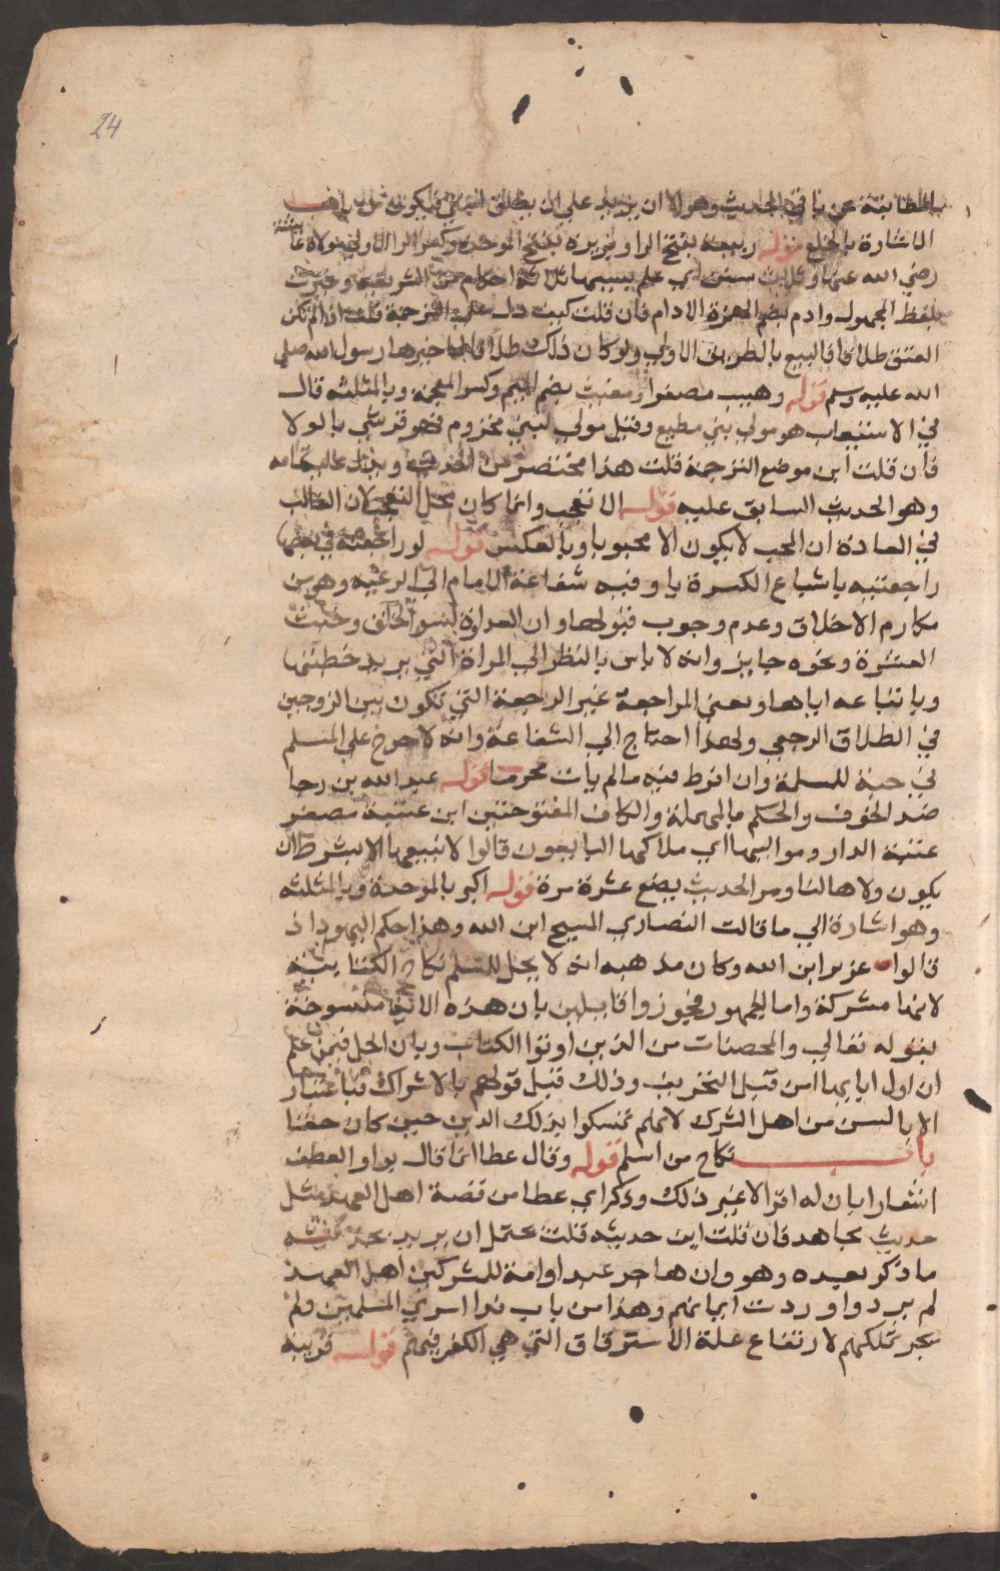 24
عن باقي الحديث وهو الا ان يريد على ان يطلق ابنتي فيكون
الاشارة بالخلع قوله ربيعة بفتح الرا وبريرة بفتح الموحدة وكسر الرا الاولى مولاة عائشة
رضي الله عنها وثلاث سنن اي علم بسببها ثلاثة احكام من الشريعة وخيرت
بلفظ المجهول وادم بضم الهمزة الادام فان قلت كيف دل على الترجمة قلت اذا لم تكن
العتق طلاقا فالبيع بالطريق الاولى ولو كان ذلك طلاقا لما خيرها رسول الله صلى
الله عليه وسلم قوله وهيب مصغرا ومغيث بضم الميم وكسر المعجمة وبالمثلثة قال
في الاستيعاب هو مولى بني مطيع وقيل مولى لبني مخزوم فهو قرشي بالولا
فان قلت اين موضع الترجمة قلت هذا مختصر من الحديث ويدل عليه تمامه
وهو الحديث السابق عليه قوله الا تعجب وانما كان محل التعجب لان الغالب
في العادة ان المحب لا يكون الا محبوبا وبالعكس قوله لو راجعته في بعضها
راجعتيه باشباع الكسرة يا وفيه شفاعة الامام الى الرعية وهو من
مكارم الاخلاق وعدم وجوب قبولها وان العداوة لسو الخلق وخبث
العشرة ونحوه جايز وانه لا باس بالنظر الى المراة التي يريد خطبتها
وباتباعه اياها ومعنى المراجعة غير الرجعة التي تكون بين الزوجين
في الطلاق الرجعي ولهذا احتاج الى الشفاعة وانه لا حرج على المسلم
في حبه للمسلمة وان افرط فيه ما لم يات محرما قوله عبد الله بن رجا
ضد الخوف والحكم بالمهملة والكاف المفتوحتين ابن عتيبة مصغر
عتبة الدار ومواليها اي ملاكها البايعون قالوا لا نبيعها الا بشرط ان
يكون ولاها لنا ومر الحديث بضع عشرة مرة قوله اكبر بالموحدة وبالمثلثة
وهو اشارة الى ما قالت النصارى المسيح ابن الله وهذا حكم اليهود اذ
قالوا عزير ابن الله وكان مذهبه انه لا يحل للمسلم نكاح الكتابية
لانها مشركة واما الجمهور فجوزوا قايلين بان هذه الاية منسوخة
بقوله تعالى والمحصنات من الذين اوتوا الكتاب وبان الحل فيمن علم
ان اول ابايها امن قبل التحريف وذلك قبل قولهم بالاشراك فباعتبار
الابا لسن من اهل الشرك لانهم تمسكوا بذلك الدين حين كان حقا
باب نكاح من اسلم قوله وقال عطا انما قال بواو العطف
اشعارا بان له اقرالا غير ذلك وذكر اي عطا من قصة اهل العهد مثل
حديث مجاهد فان قلت اين حديثه قلت يحتمل ان يريد بحديثه
ما ذكر بعده وهو وان هاجر عبد او امة للمشركين اهل العهد
لم يردوا وردت اثمانهم وهذا من باب فدا اسرى المسلمين ولم
يجز تملكهم لارتفاع علة الاسترقاق التي هي الكفر فيهم قوله قريبة